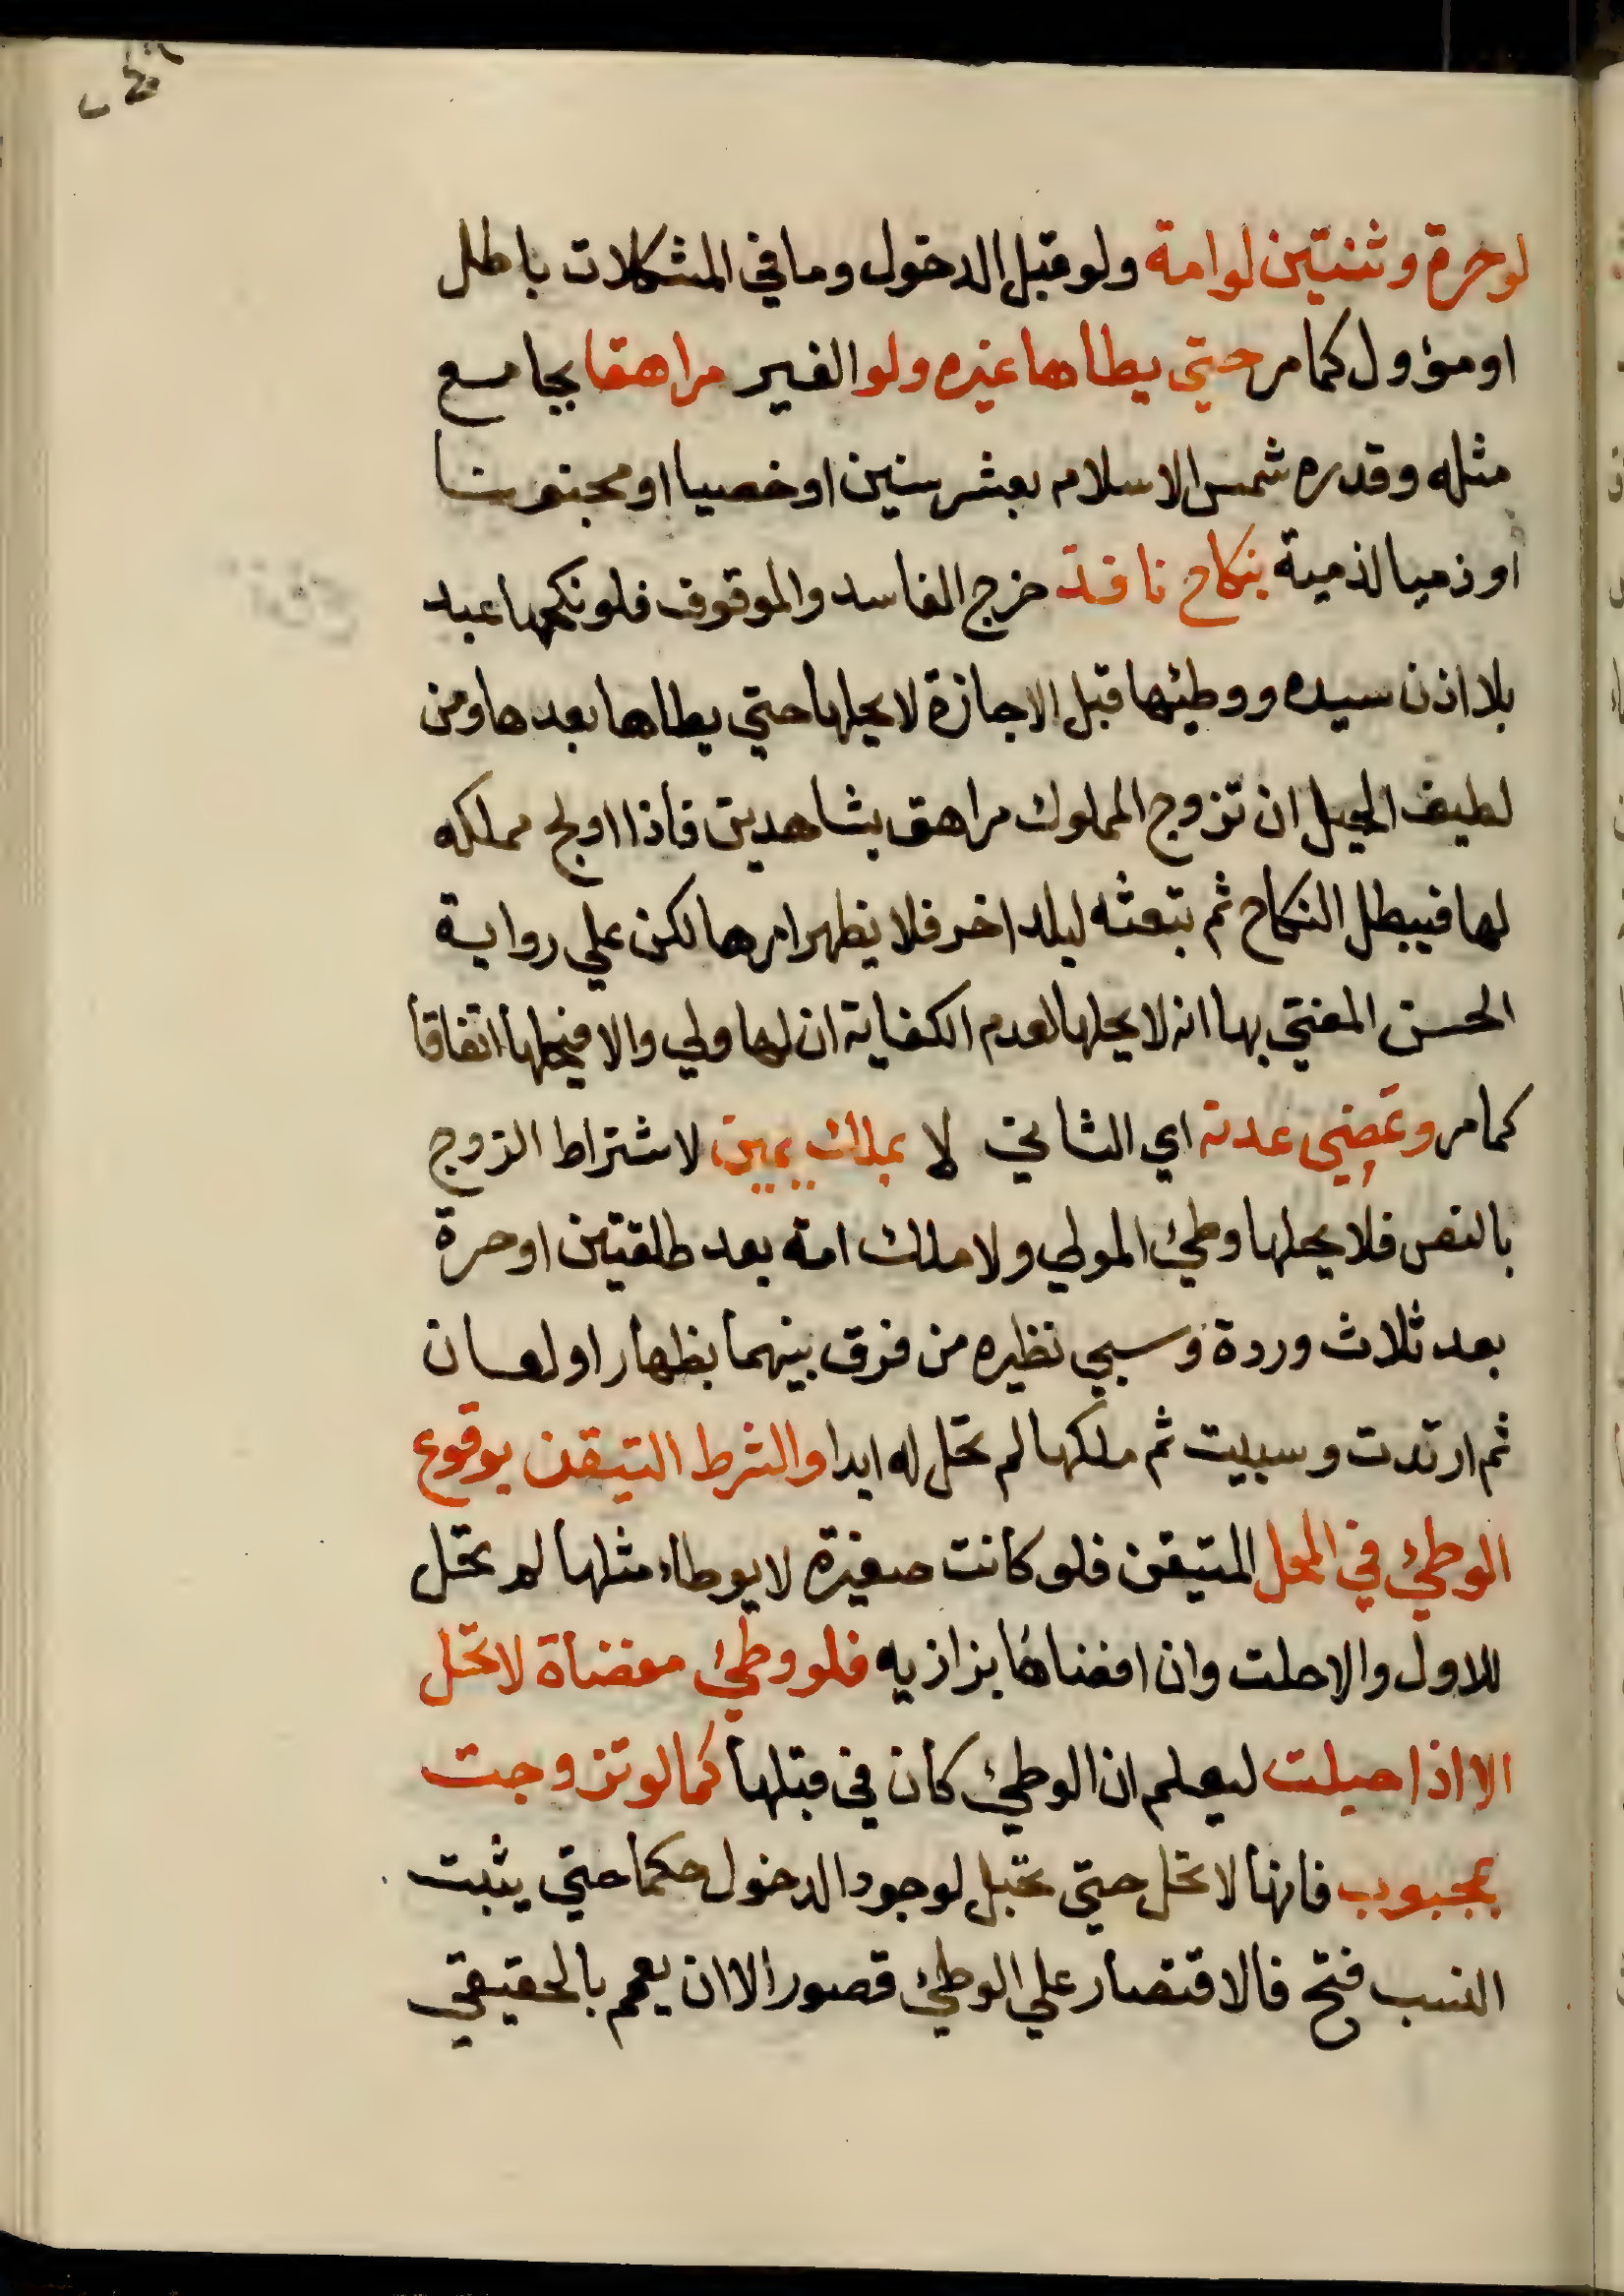 لو حرة وثنتين لو امة ولو قبل الدخول وما في المشكلات باطل
او مؤول كما مر حتي يطاها غيره ولو الغير مراهقا يجامع
مثله وقدره شمس الاسلام بعشر سنين او خصيا او مجنونا
او ذميا لذمية بنكاح نافذ خرج الفاسد والموقوف فلو نكحها عبد
بلا اذن سيده ووطئها قبل الاجازة لا يحلها حتي يطاها بعدها ومن
لطيف الحيل ان تزوج المملوك مراهق بشاهدين فاذا اولج مملكه
لها فيبطل النكاح ثم تبعثه لبلد اخر فلا يظهر امرها لكن علي رواية
الحسن المفتي بها انه لا يحلها لعدم الكفاية ان لها ولي والا فيحلها اتفاقا
كما مر وتمضي عدته اي الثاني لا بملك يمين لاشتراط الزوج
بالنص فلا يحلها وطئ المولي ولا ملك امة بعد طلقتين او حرة
بعد ثلاث وردة وسبي نظيره من فرق بينهما بظهار او لعان
ثم ارتدت وسبيت ثم ملكها لم تحل له ابدا والشرط التيقن بوقوع
الوطئ في المحل المتيقن فلو كانت صغيرة لا يوطاء مثلها لم تحل
للاول والا حلت وان افضاها بزازيه فلو وطئ مفضاة لا تحل
الا اذا حبلت ليعلم ان الوطئ كان في قبلها كما لو تزوجت
بمجبوب فانها لا تحل حتي تحبل لوجود الدخول حكما حتي يثبت
النسب فتح فالاقتصار علي الوطئ قصور الا ان يعمم بالحقيقي